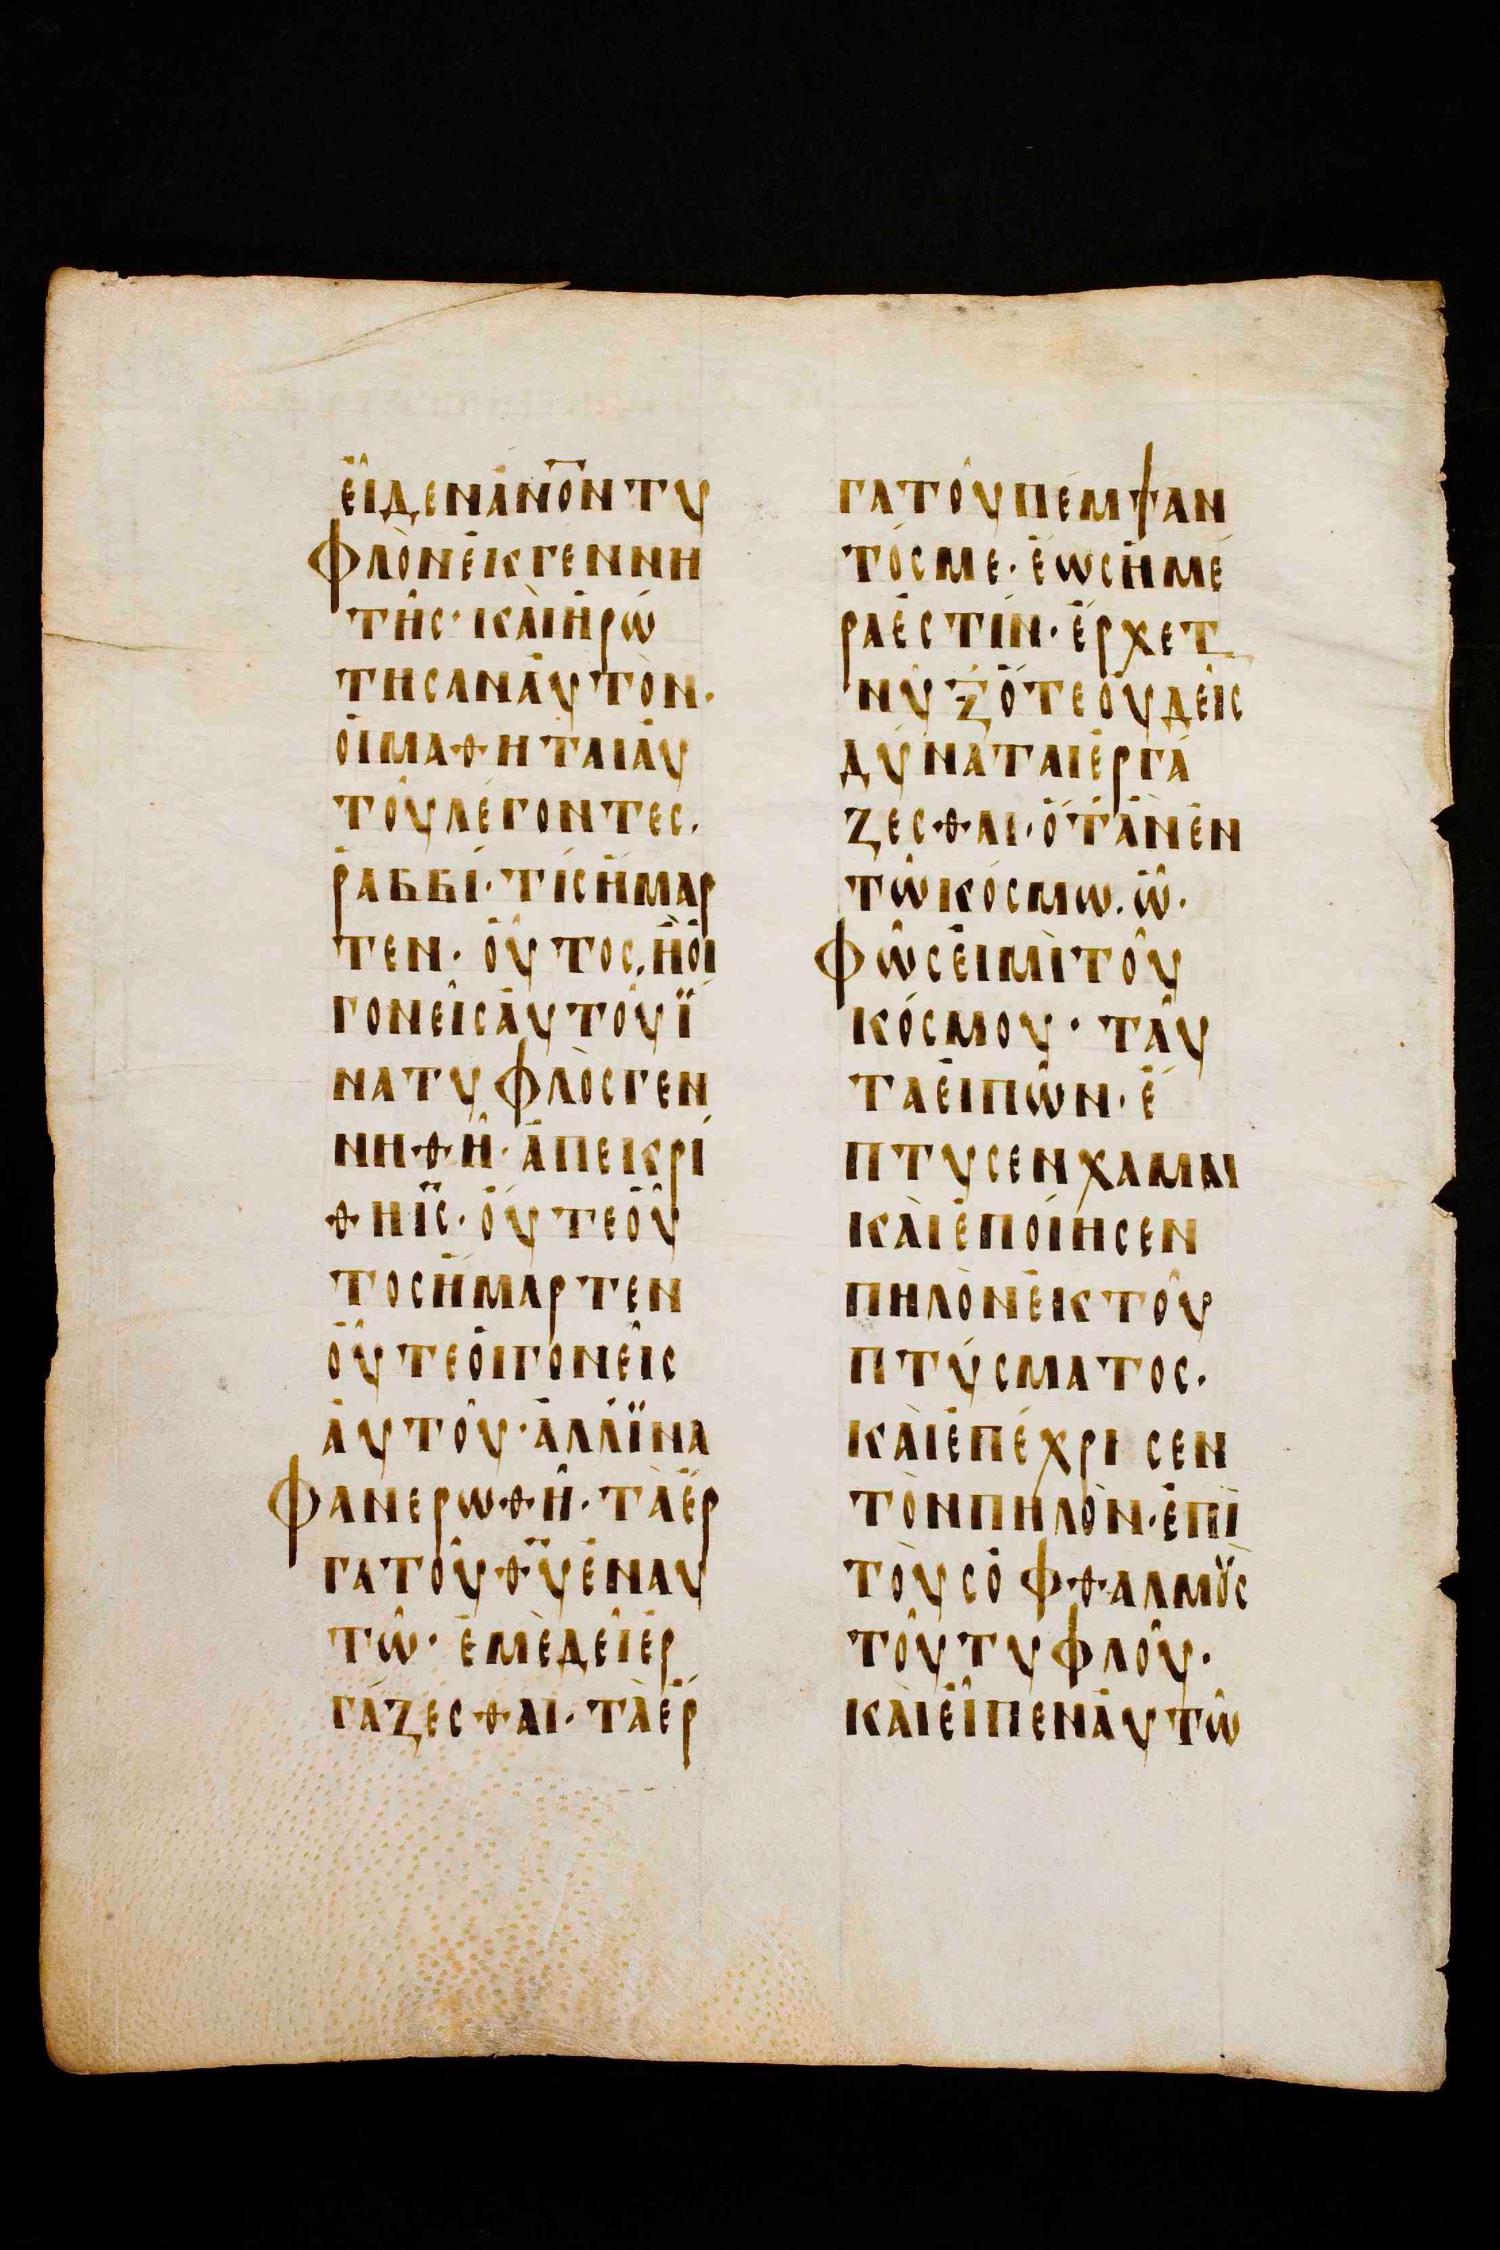 ΕἶΔΕΝΑ̅Ν̅Ο̅ΝΤΥ
ΦΛῸΝἘΚΓΕΝΝΗ
ΤΗ͂Σ· ΚΑῚἨΡΏ
ΤΗΣΑΝΑὐΤῸΝ·
ΟἱΜΑΘΗΤΑΙΑὐ
ΤΟῦΛΈΓΟΝΤΕΣ·
ῬΑΒΒΊ· ΤΊΣἭΜΑΡ
ΤΕΝ· ΟὗΤΟΣ, ἪΟἱ
ΓΟΝΕῖΣΑὐΤΟῦΪ́
ΝΑΤΥΦΛῸΣΓΕΝ
ΝΗΘΗ͂· ἈΠΕΚΡΊ
ΘΗΙ̅Σ̅· ΟὔΤΕΟὗ
ΤΟΣἭΜΑΡΤΕΝ
ΟὔΤΕΟἱΓΟΝΕῖΣ
ΑὐΤΟῦ· ἈΛΛΊ̈ΝΑ
ΦΑΝΕΡΩΘΗ͂· ΤᾺἜΡ
ΓΑΤΟῦΘ̅Υ̅ἘΝΑΥ
ΤΩ͂· ἘΜῈΔΕῖἘΡ
ΓΆΖΕΣΘΑΙ· ΤᾺἜΡ
ΓΑΤΟῦΠΈΜΨΑΝ
ΤΌΣΜΕ· ἝΩΣἩΜΈ
ΡΑἘΣΤΊΝ· ἜΡΧΕΤ
ΝῪΞὍΤΕΟὐΔΕῚΣ
ΔΎΝΑΤΑΙἘΡΓΆ
ΖΕΣΘΑΙ· ὍΤᾺΝἘΝ
ΤΩ͂ΚΌΣΜΩ· Ὦ·
ΦΩ͂ΣΕἰΜῚΤΟῦ
ΚΌΣΜΟΥ· ΤΑῦ
ΤΑΕἰΠΏΝ· Ἔ
ΠΤΥΣΕΝΧΑΜΑΙ
ΚΑῚἘΠΟΊΗΣΕΝ
ΠΗΛῸΝἘΚΤΟῦ
ΠΤΎΣΜΑΤΟΣ·
ΚΑῚἘΠΈΧΡΙΣΕΝ
ΤῸΝΠΗΛῸΝ· ἘΠῚ
ΤΟῪΣὈΦΘΑΛΜΟῪΣ
ΤΟῦΤΥΦΛΟῦ·
ΚΑῚΕἶΠΕΝΑὐΤΩ͂